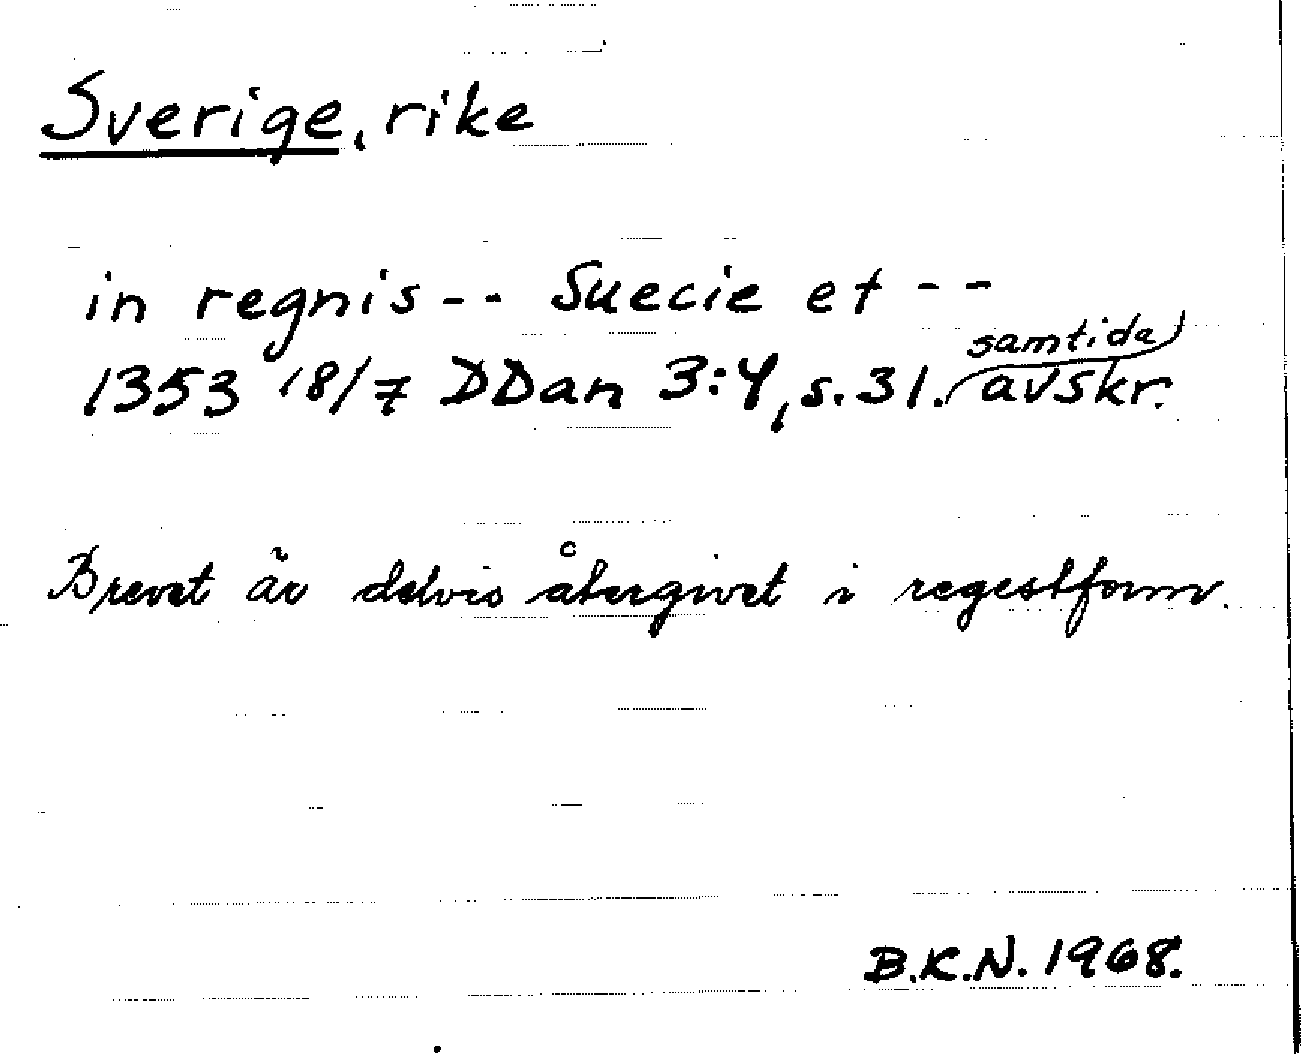 Sverige, rike
in regnis -- Suecie et --
1353 18/7 DDan 3:4, s. 31. samtida avskr.
Brevet är delvis återgivet i regestform.
B.K.N. 1968.